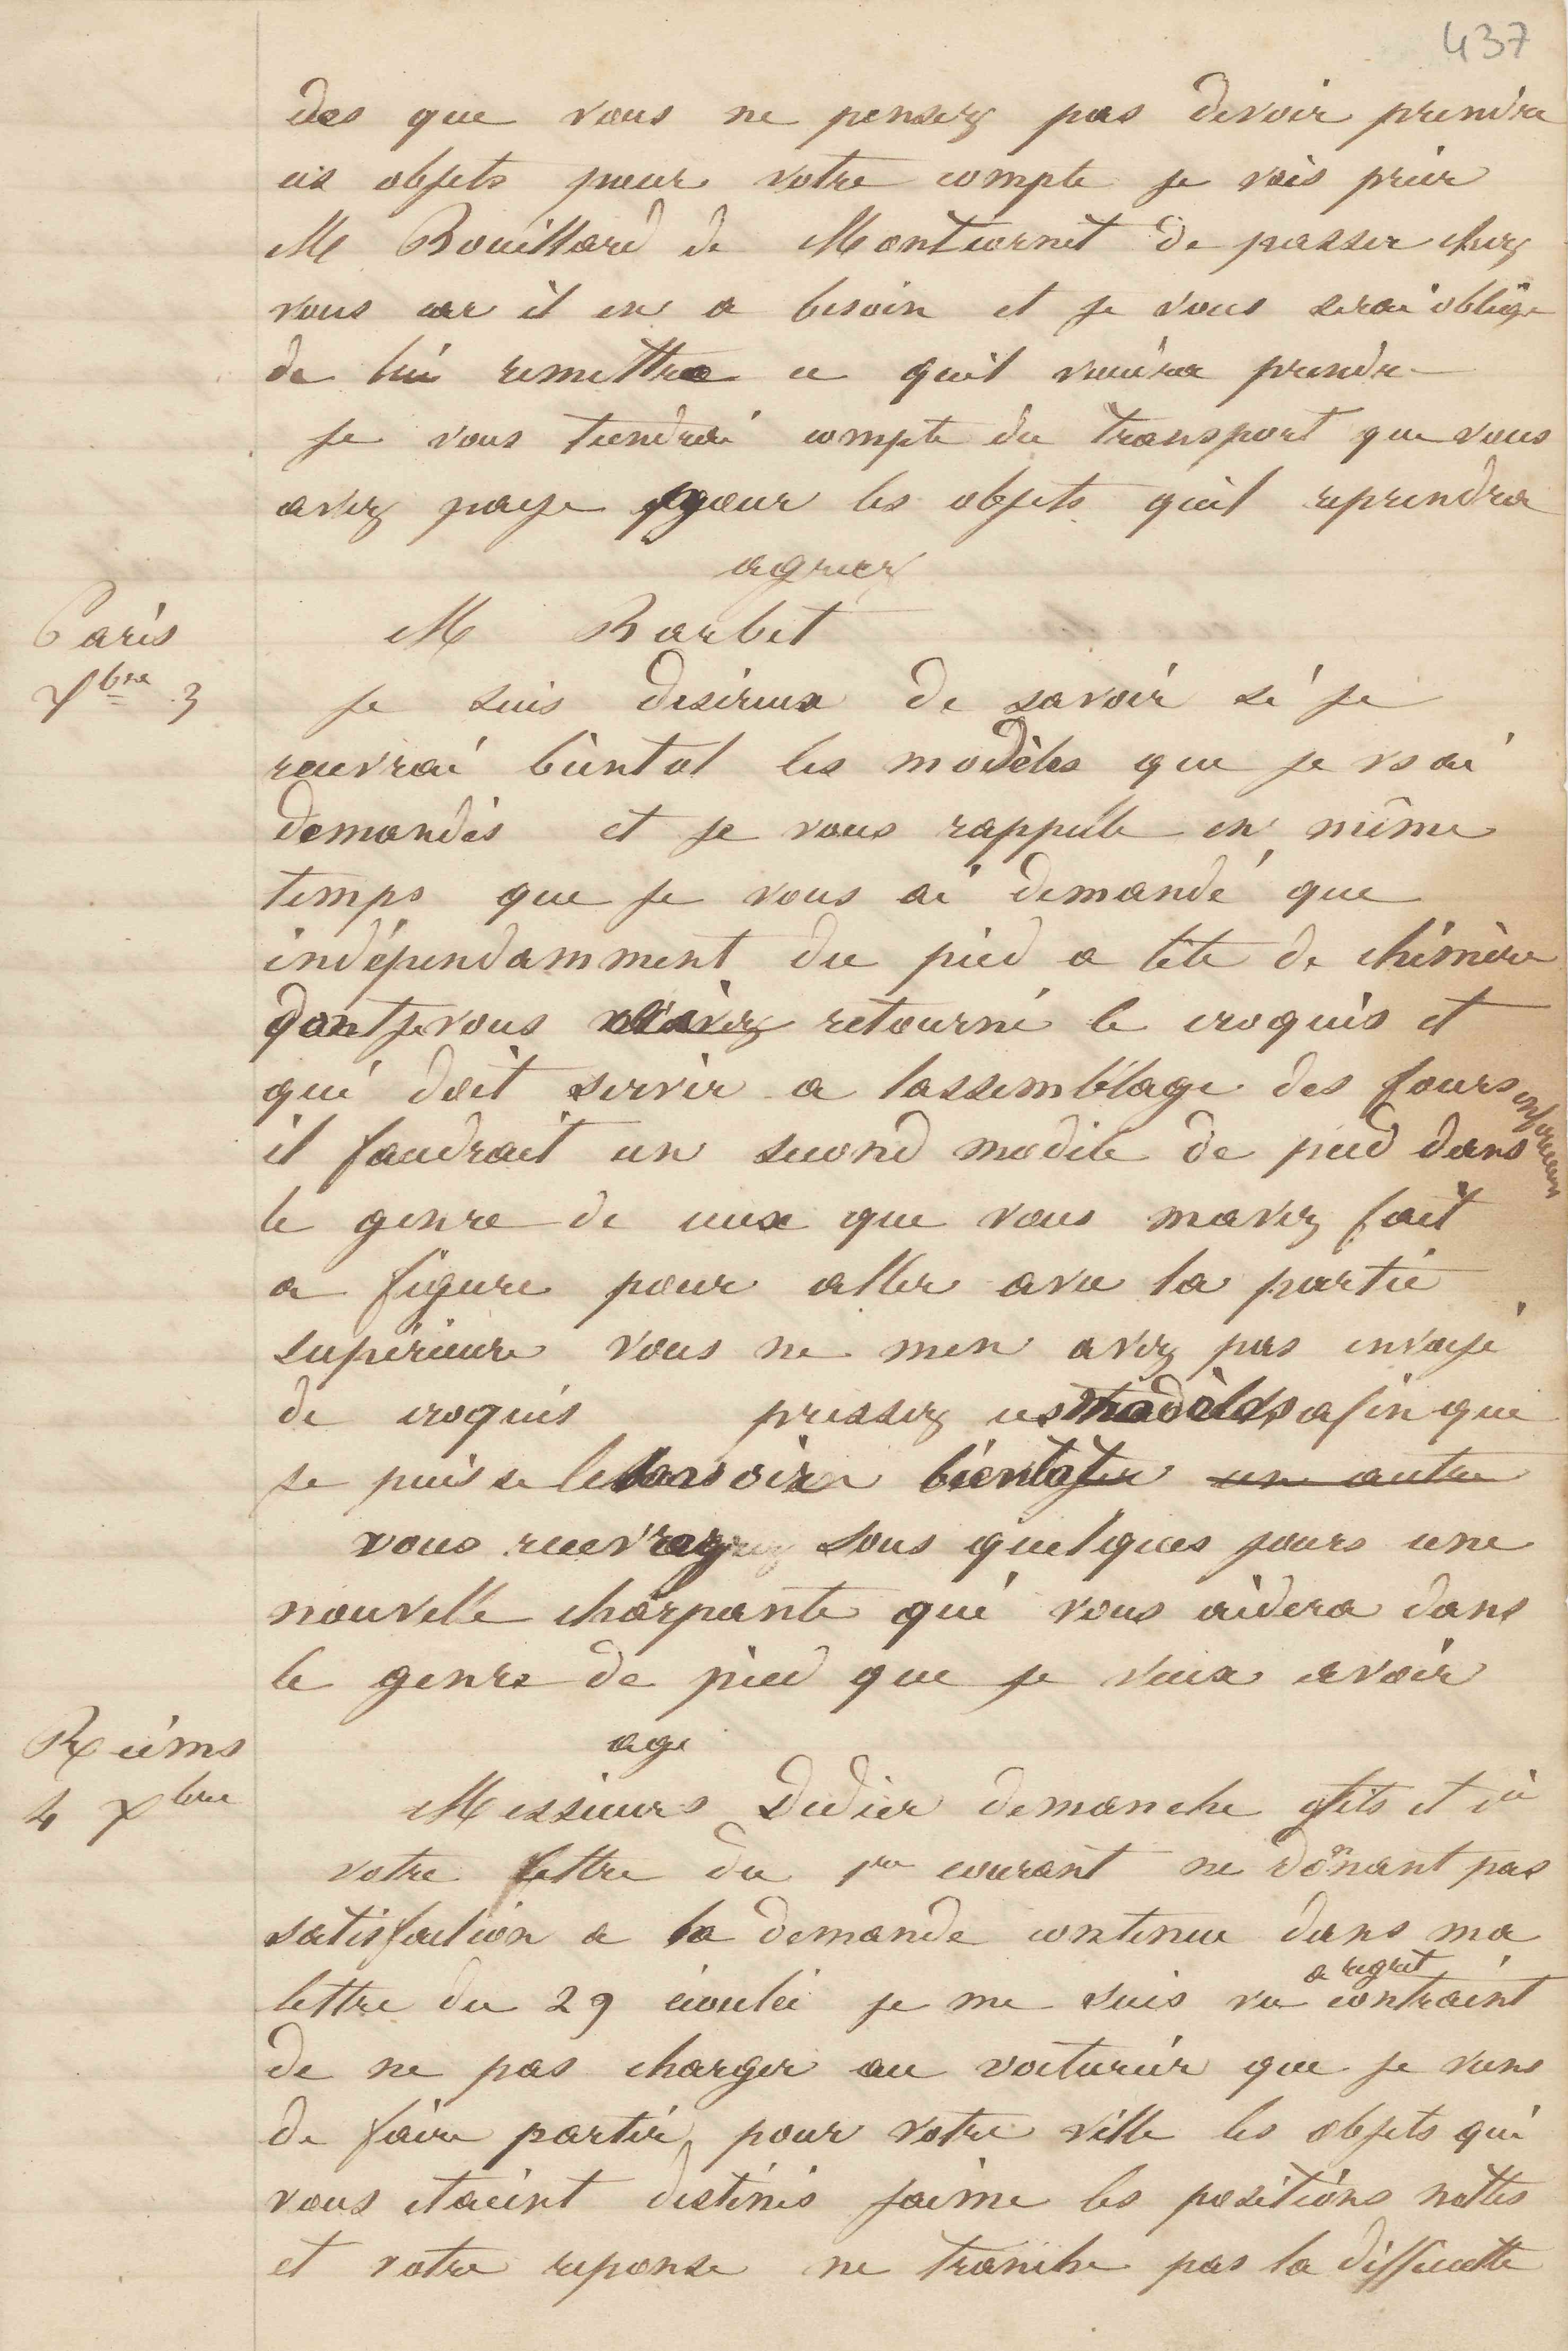 437
des que vous ne pensez pas devoir prendre
ces objets pour votre compte je vais prier
M Rouillard de Montcornet de passer chez
vous car il en a besoin et je vous serai obligé
de lui remettre ce quil voudra prendre
je vous tiendrai compte du transport que vous
avez paye pour les objets quil reprendra
agreez
Paris
Xbre 3
M Barbet
je suis desireux de savoir si je
recevrai bientot les modèles que je vs ai
demandés et je vous rappelle en même
temps que je vous ai demandé que
indépendamment du pied a tête de chimère
dont je vous retourné le croquis et
qui doit servir a lassemblage des fours inférieurs
il faudrait un second modele de pied dans
le genre de ceux que vous mavez fait
a figure pour aller avec la partie
supérieure vous ne men avez pas envoyé
de croquis pressez ces modèles afin que
je puisse les avoir bientôt un autre
vous recevrez sous quelques jours une
nouvelle charpente qui vous aidera dans
le genre de pied que je veux avoir
age
Reims
4 Xbre
Messieurs Didier demanche fils et cie
votre lettre du 1er courant ne donnant pas
satisfaction a la demande contenue dans ma
lettre du 29 écoulé je me suis vu a regret contraint
de ne pas charger au voiturier que je viens
de faire partir pour votre ville les objets qui
vous etaient destinés jaime les positions nettes
et votre reponse ne tranche pas la difficulté